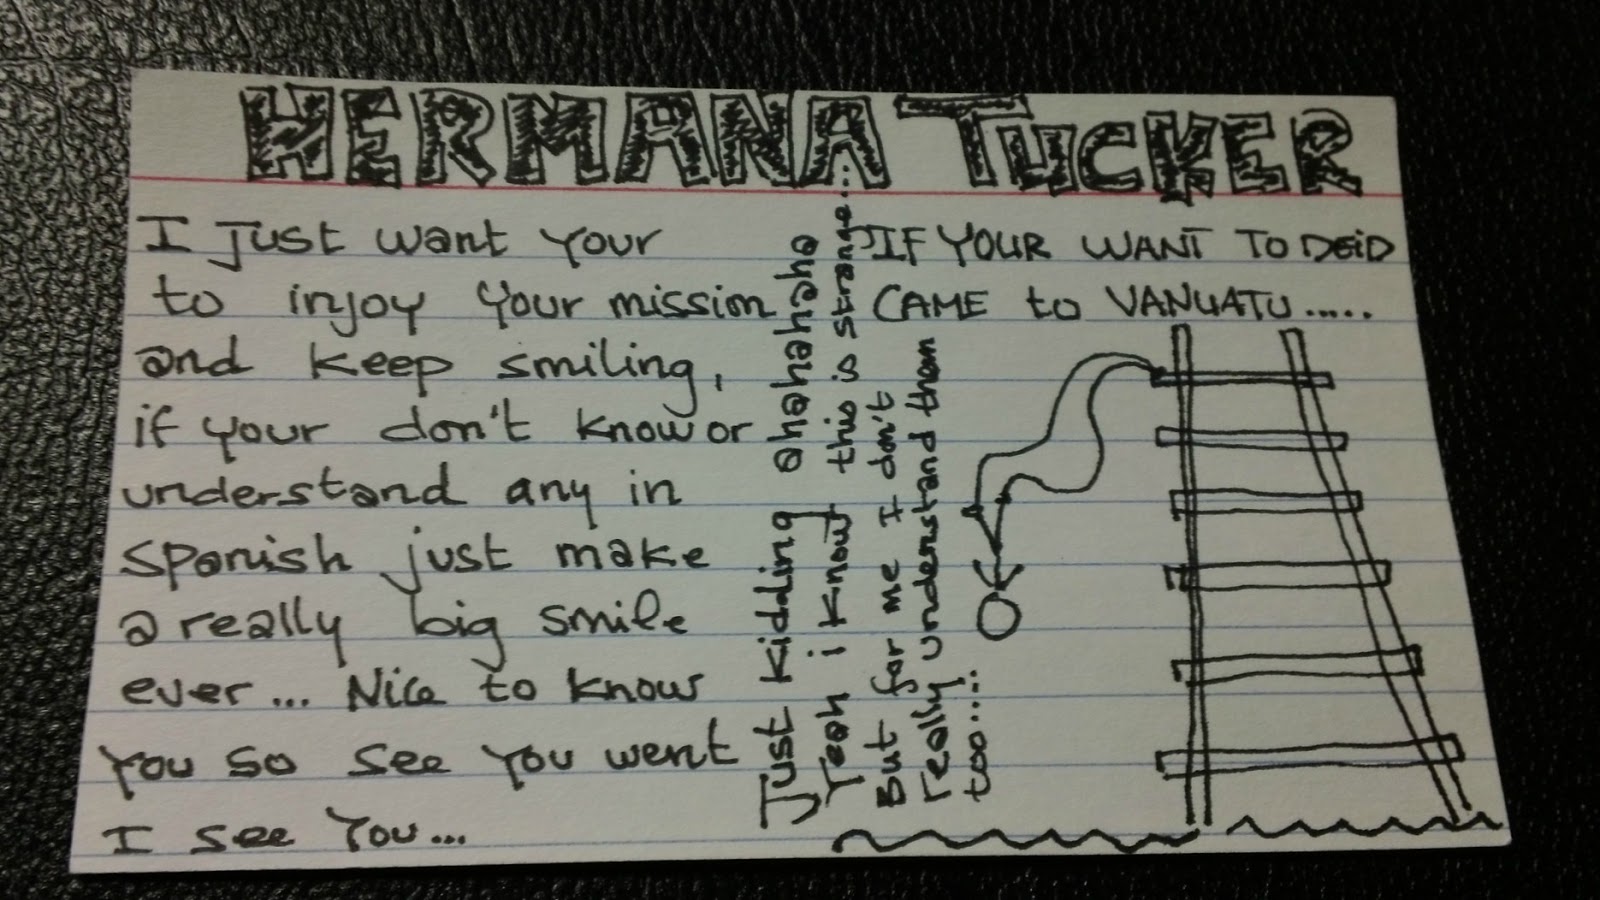 HERMANA TUCKER
I just want your
to injoy your mission
and keep smiling,
if your don't know or
understand any in
spanish just make
a really big smile
ever... Nice to know
you so see you went
I see You...
Just kidding ahahahahaha
Yeah i know this is strange...
But for me I don't
really understand them
too.....
IF YOUR WANT TO DEiD
CAME to VANUATU.....